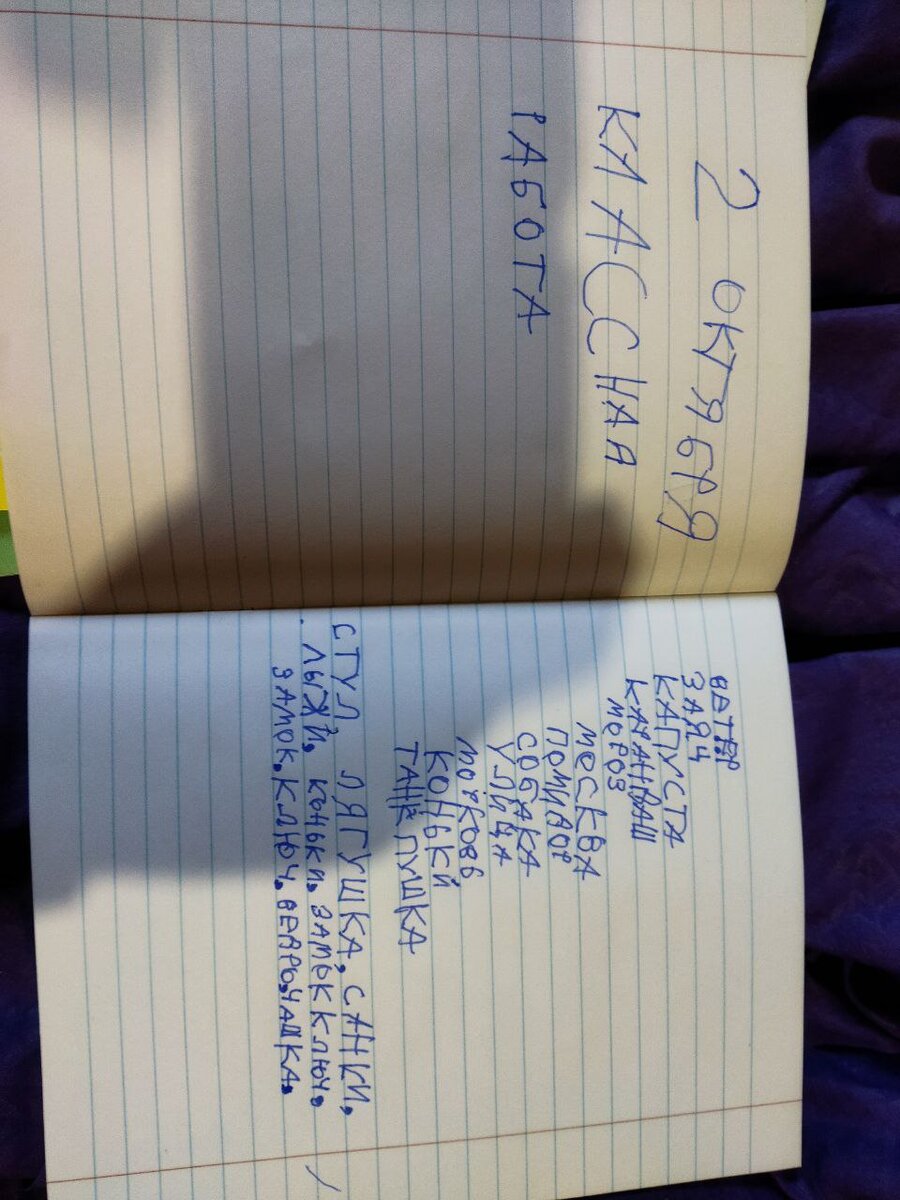 2 ОКТЯБРЯ
КЛАССНАЯ
РАБОТА
ВЕТЕР
ЗАЯЦ
КАПУСТА
КАРАНДАШ
МОРОЗ
МОСКВА
ПОМИДОР
СОБАКА
УЛИЦА
МОРКОВЬ
КОНЬКИ
ТАНК ПУШКА
СТУЛ, ЛЯГУШКА, САНКИ,
ЛЫЖИ, КОНЬКИ. ЗАМОК КЛЮЧ.
ЗАМОК. КЛЮЧ. ВЕДРО. ЧАШКА.